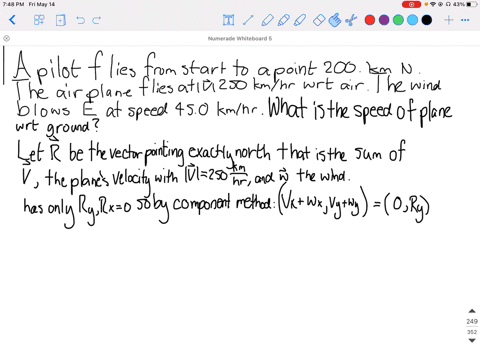 7:48 PM Fri May 14
43%
Numerade Whiteboard 5
A pilot flies from start to a point 200. km N.
The airplane flies at |v⃗| 250 km/hr wrt air. The wind
blows E at speed 45.0 km/hr. What is the speed of plane
wrt ground?
Let R⃗ be the vector pointing exactly north that is the sum of
V⃗, the plane's velocity with |V⃗|=250 km/hr, and w⃗ the wind.
has only Ry, Rx=0 so by component method: (Vx+wx, Vy+wy) = (0, Ry)
249
352